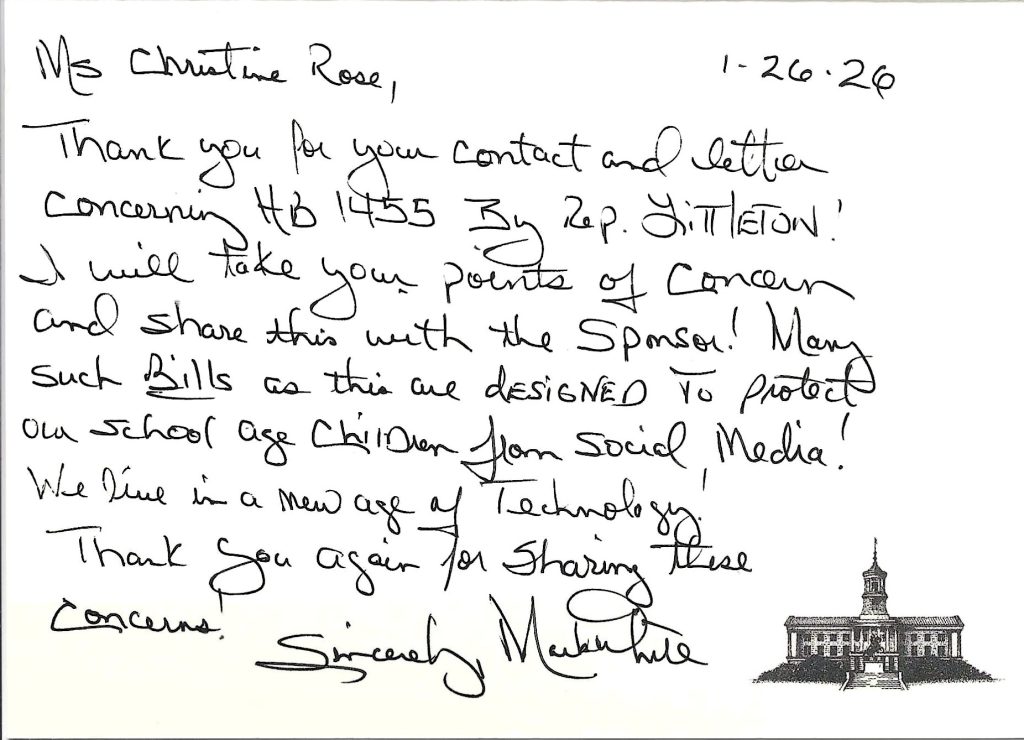 Ms Christine Rose,
1-26-26
Thank you for your contact and letter
concerning HB 1455 By Rep. LiTTlETON!
I will take your points of concern
and share this with the Sponsor! Many
such Bills as this are DESiGNED To protect
our school age Children from Social Media!
We live in a new age of Technology!
Thank you again for sharing these
concerns!
Sincerely, Mark White